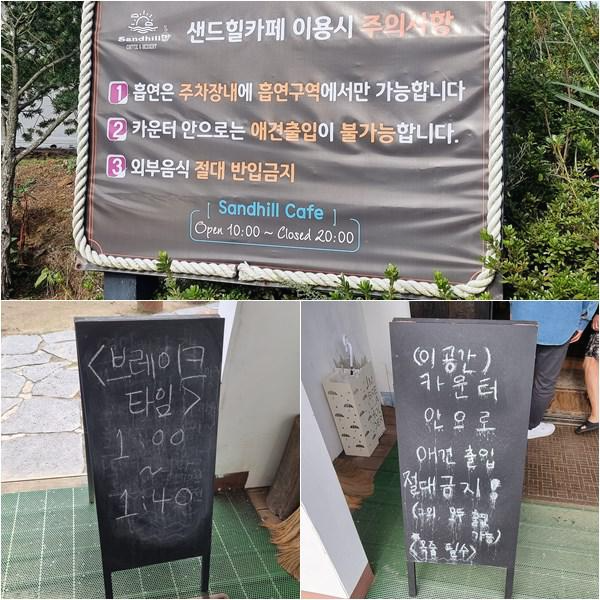 Sandhill
COFFEE & DESSERT
샌드힐카페 이용시 주의사항
1 흡연은 주차장내에 흡연구역에서만 가능합니다
2 카운터 안으로는 애견출입이 불가능합니다.
3 외부음식 절대 반입금지
[ Sandhill Cafe ]
Open 10:00 ~ Closed 20:00
<브레이크
타임>
1:00
~
1:40
(이공간)
카운터
안으로
애견 출입
절대금지!
(그외 모두
가능)
<목줄 필수>